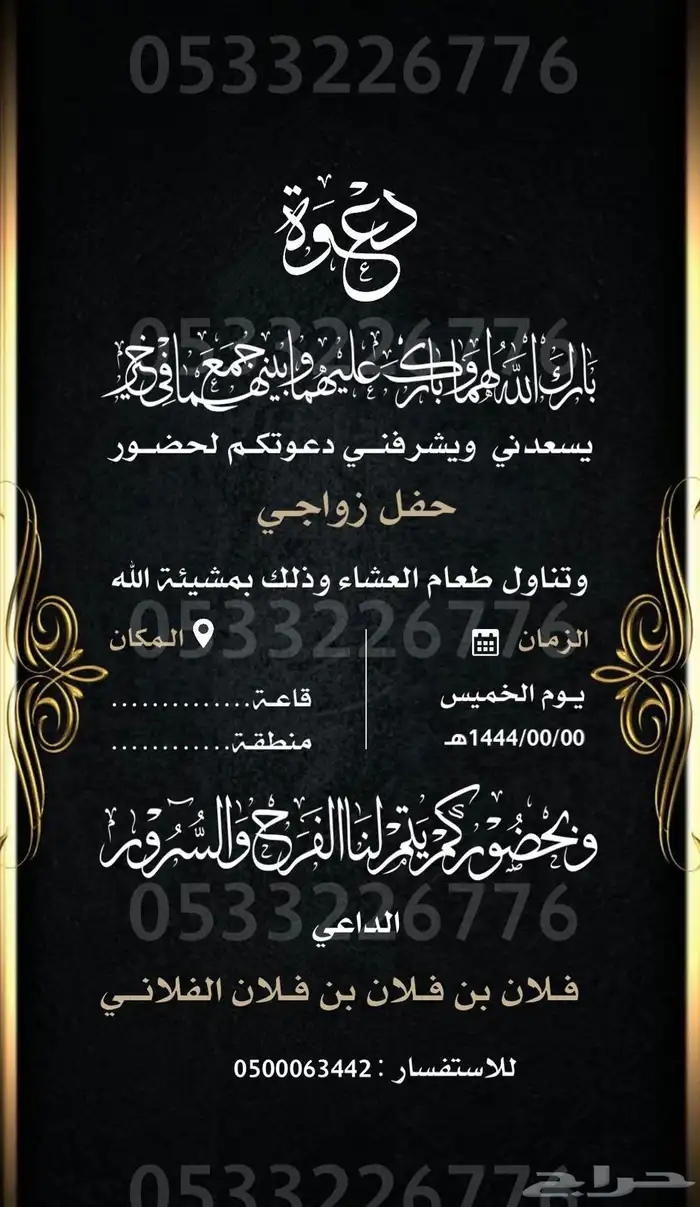 0533226776
دعوة
0533226776
بارك الله لهما وبارك عليهما وجمع بينهما في خير
يسعدني ويشرفني دعوتكم لحضور
حفل زواجي
وتناول طعام العشاء وذلك بمشيئة الله
0533226776
الزمان المكان
يوم الخميس قاعة..............
1444/00/00هـ منطقة............
وبحضوركم يتم لنا الفرح والسرور
0533226776
الداعي
فلان بن فلان بن فلان الفلاني
للاستفسار : 0500063442
0533226776
حراج